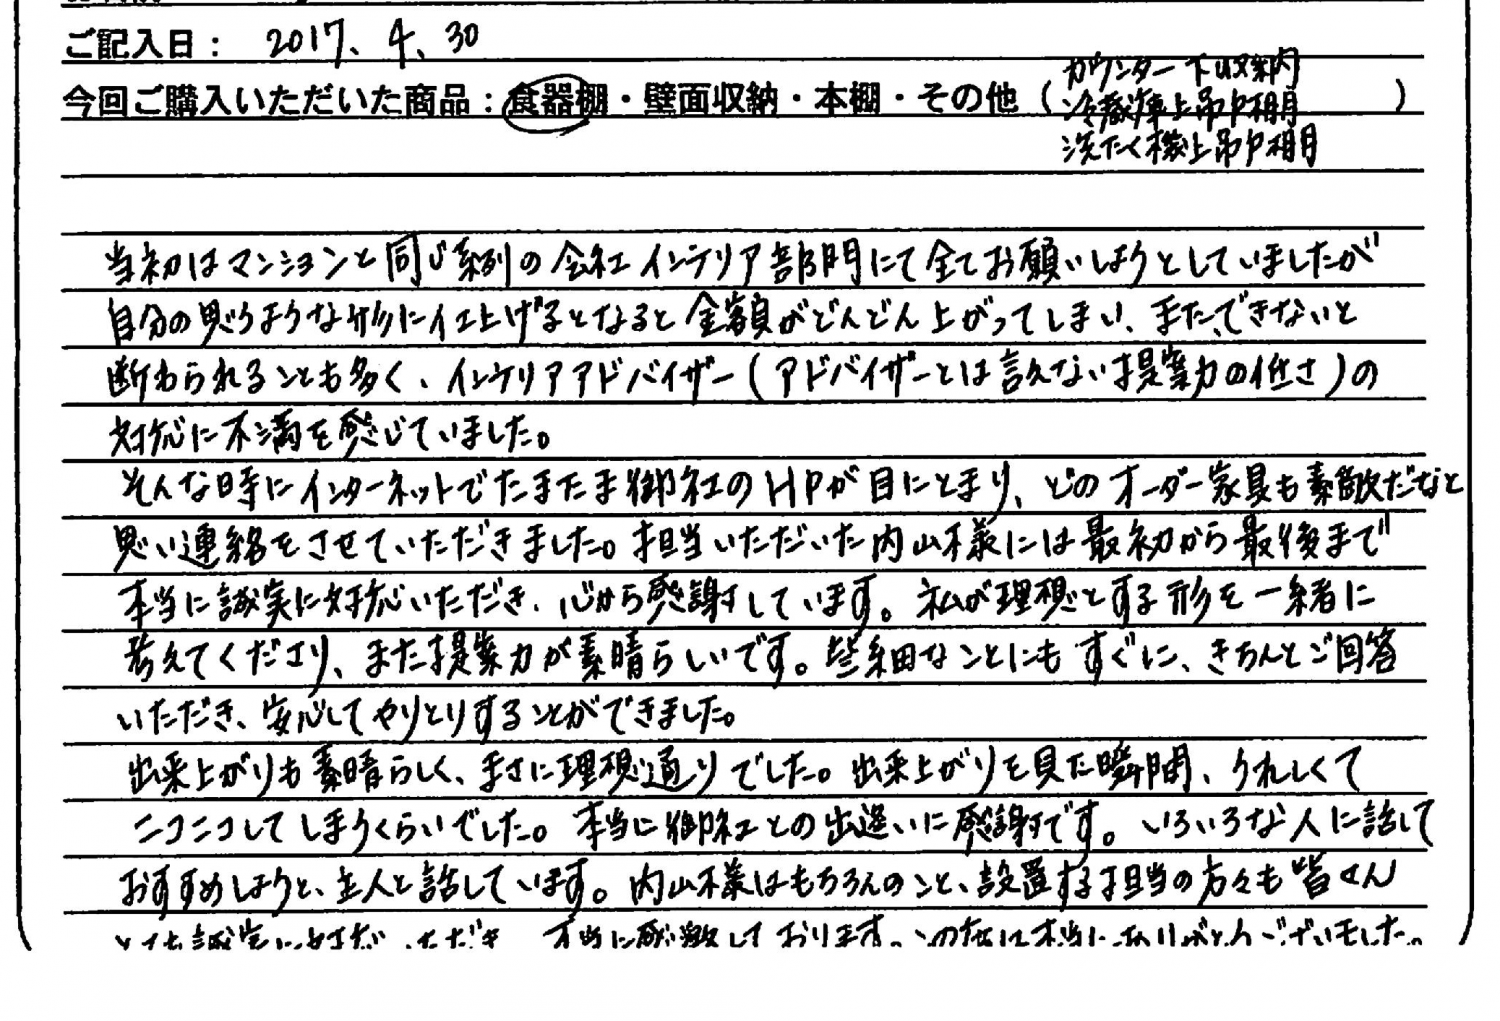 ご記入日： 2017. 4. 30
今回ご購入いただいた商品：食器棚・壁面収納・本棚・その他（カウンター下収納
冷蔵庫上吊戸棚）
洗たく機上吊戸棚
当初はマンションと同じ系列の会社インテリア部門にて全てお願いしようとしていましたが
自分の思うような形に仕上げるとなると金額がどんどん上がってしまい、また、できないと
断わられることも多く、インテリアアドバイザー(アドバイザーとは言えない提案力の低さ)の
対応に不満を感じていました。
そんな時にインターネットでたまたま御社のHPが目にとまり、どのオーダー家具も素敵だなと
思い連絡をさせていただきました。担当いただいた内山様には最初から最後まで
本当に誠実に対応いただき、心から感謝しています。私が理想とする形を一緒に
考えてくださり、また提案力が素晴らしいです。些細なことにもすぐに、きちんとご回答
いただき、安心してやりとりすることができました。
出来上がりも素晴らしく、まさに理想通りでした。出来上がりを見た瞬間、うれしくて
ニコニコしてしまうくらいでした。本当に御社との出逢いに感謝です。いろいろな人に話して
おすすめしようと、主人と話しています。内山様はもちろんのこと、設置する担当の方々も皆さん
とても誠実に対応いただき 本当に感激しております。この度は本当にありがとうございました。